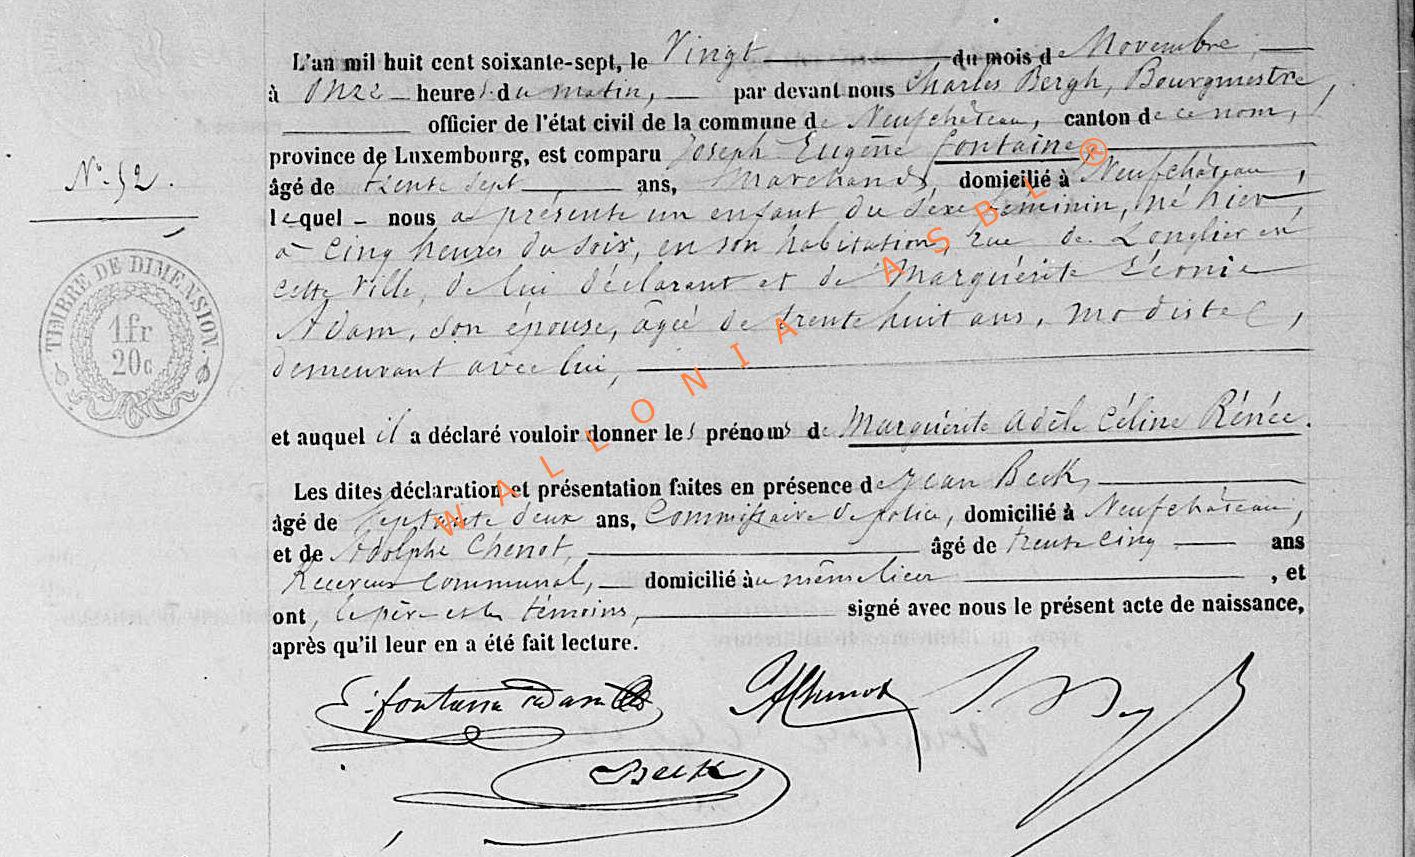 L'an mil huit cent soixante-sept, le Vingt du mois de Novembre,
à onze heures du matin, par devant nous Charles Bergh, Bourgmestre,
officier de l'état civil de la commune de Neufchâteau, canton de ce nom,
province de Luxembourg, est comparu Joseph Eugène fontaine, ®
N°. 52.
âgé de trente sept ans, Marchand, domicilié à Neufchâteau,
lequel nous a présenté un enfant du sexe féminin, né hier,
à cinq heures du soir, en son habitation, rue de Longlier en
cette ville, de lui déclarant et de Marguérite Léonie
Adam, son épouse, âgée de trente huit ans, modiste,
demeurant avec lui,
TIMBRE DE DIMENSION.
1fr
20c
et auquel il a déclaré vouloir donner les prénoms de Marguérite Adèle Céline Rénée.
Les dites déclaration et présentation faites en présence de Jean Beck,
âgé de septante deux ans, Commissaire de police, domicilié à Neufchâteau,
et de Adolphe Chenot, âgé de trente cinq ans
Receveur communal, domicilié au même lieu, et
ont, le père et les témoins, signé avec nous le présent acte de naissance,
après qu'il leur en a été fait lecture.
E. fontaine adam
AChenot
Beck
WALLONIA ASBL